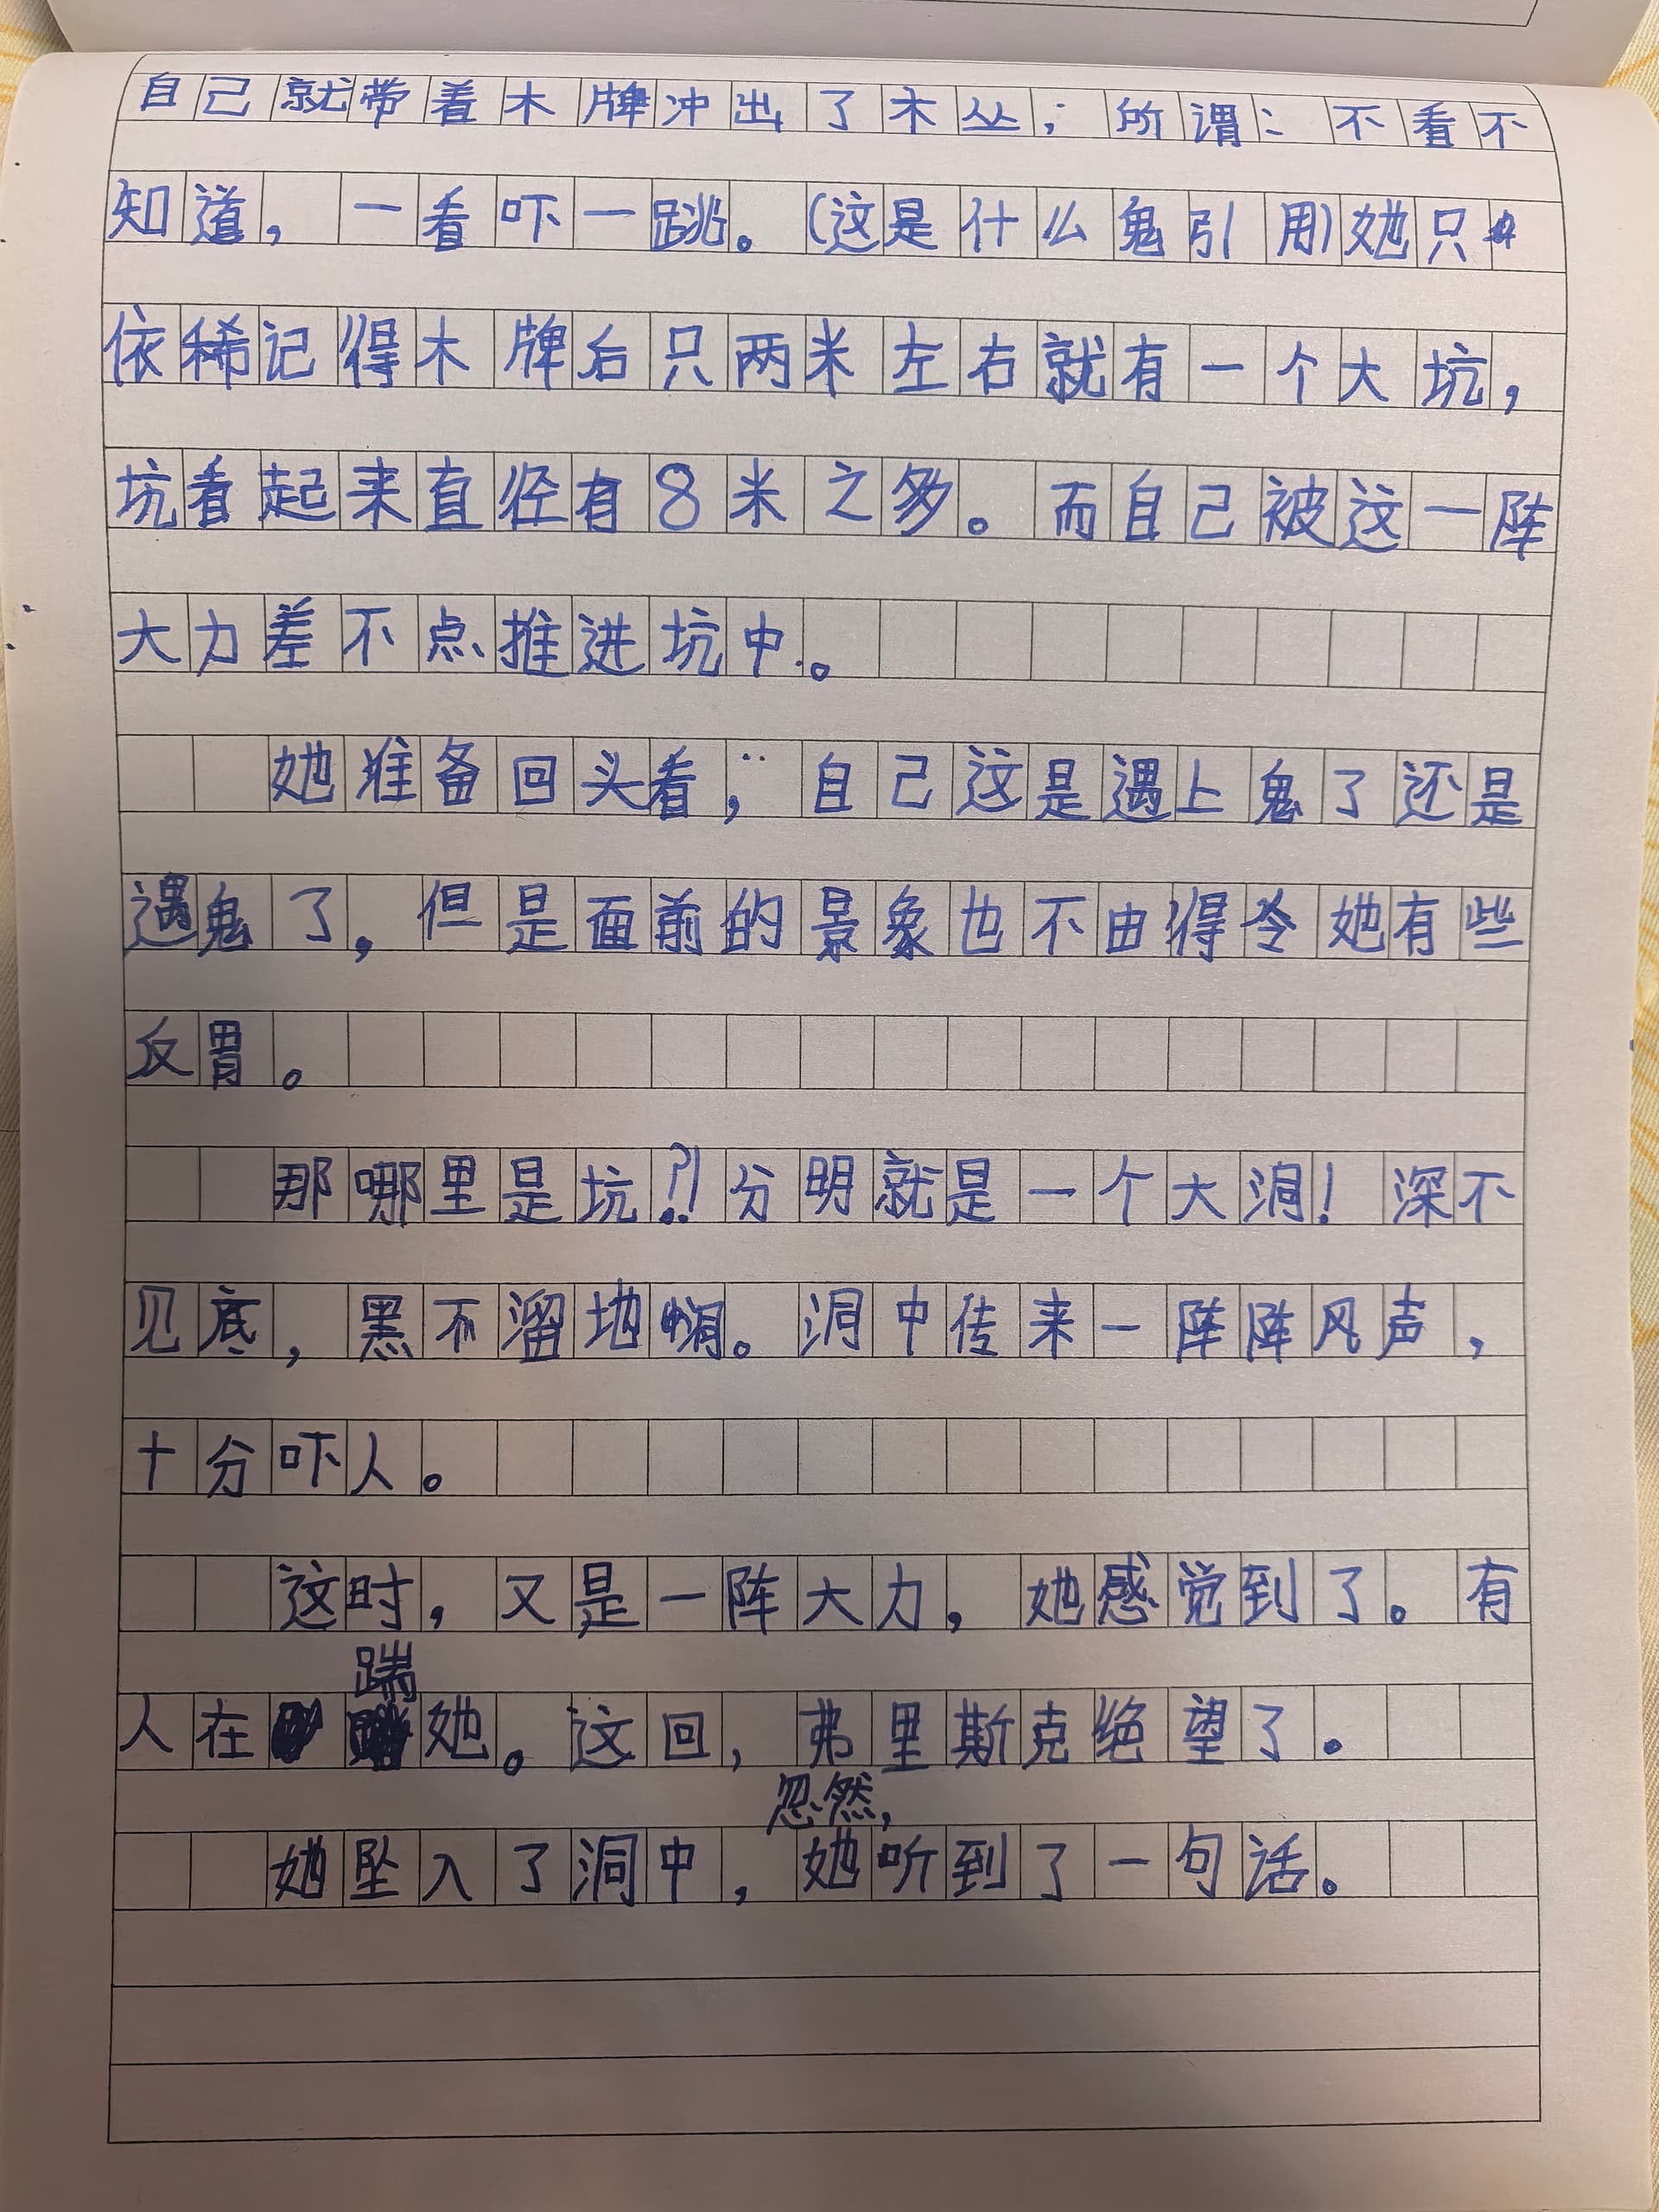 自己就带着木牌冲出了木丛；所谓：不看不
知道，一看吓一跳。（这是什么鬼引用）她只
依稀记得木牌后只两米左右就有一个大坑，
坑看起来直径有8米之多。而自己被这一阵
大力差不点推进坑中。
她准备回头看，自己这是遇上鬼了还是
遇鬼了，但是面前的景象也不由得令她有些
反胃。
那哪里是坑？！分明就是一个大洞！深不
见底，黑不溜地。洞中传来一阵阵风声，
十分吓人。
这时，又是一阵大力，她感觉到了。有
踹
人在她。这回，弗里斯克绝望了。
忽然，
她坠入了洞中，她听到了一句话。